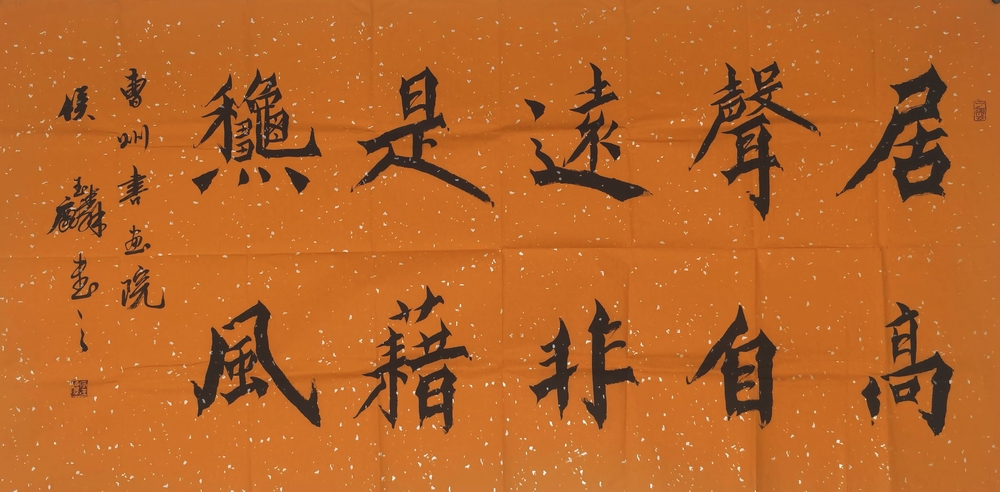 居高
聲自
遠非
是藉
龝風
曹州書画院
侯玉麟書之